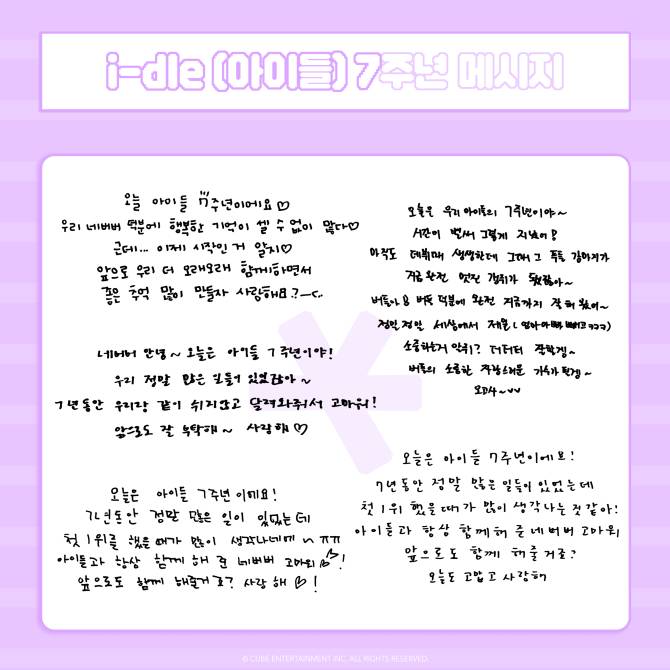 i-dle (아이들) 7주년 메시지
오늘 아이들 7주년이에요♡
우리 네버버 덕분에 행복한 기억이 셀 수 없이 많다♡
근데... 이제 시작인 거 알지♡
앞으로 우리 더 오래오래 함께하면서
좋은 추억 많이 만들자 사랑해
네버버 안녕~ 오늘은 아이들 7주년이야!
우리 정말 많은 일들이 있었잖아~
7년동안 우리랑 같이 쉬지않고 달려와줘서 고마워!
앞으로도 잘 부탁해~ 사랑해♡
오늘은 아이들 7주년이예요!
7년동안 정말 많은 일이 있었는데
첫 1위를 했을때가 많이 생각나네에 ㅠㅠ
아이들과 항상 함께 해 준 네버버 고마워!
앞으로도 함께 해줄거죠? 사랑해♡!
오늘은 우리 아이들의 7주년이야~
시간이 벌써 그렇게 지났어!
아직도 데뷔때 생생한데 그때 그
지금 완전 멋진 됐잖아~
버들아 버들 덕분에 완전 지금까지 잘 해 왔어~
정말 정말 세상에서 제일 (엄마아빠 빼고ㅋㅋㅋ)
소중한거 알쥐?
버들의 소중한 자랑스러운 가수가 될게~
오늘은 아이들 7주년이에요!
7년동안 정말 많은 일들이 있었는데
첫 1위 했을때가 많이 생각나는 것 같아!
아이들과 항상 함께해 준 네버버 고마워
앞으로도 함께 해줄거죠?
오늘도 고맙고 사랑해
© CUBE ENTERTAINMENT INC. ALL RIGHTS RESERVED.